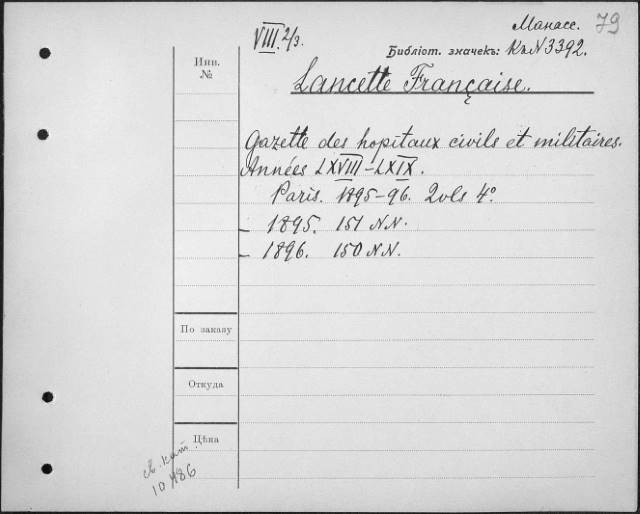 VIII. 2/3.
Манасс. 79
Библіот. значекъ: К.N3392.
Инв.
№
Lancette Française.
Gazette des hopitaux civils et militaires.
Années LXVIII-LXIX.
Paris. 1895-96. 2vls 4º.
– 1895. 151 NN.
– 1896. 150 NN.
По заказу
Откуда
Цѣна
св. кат.
10486